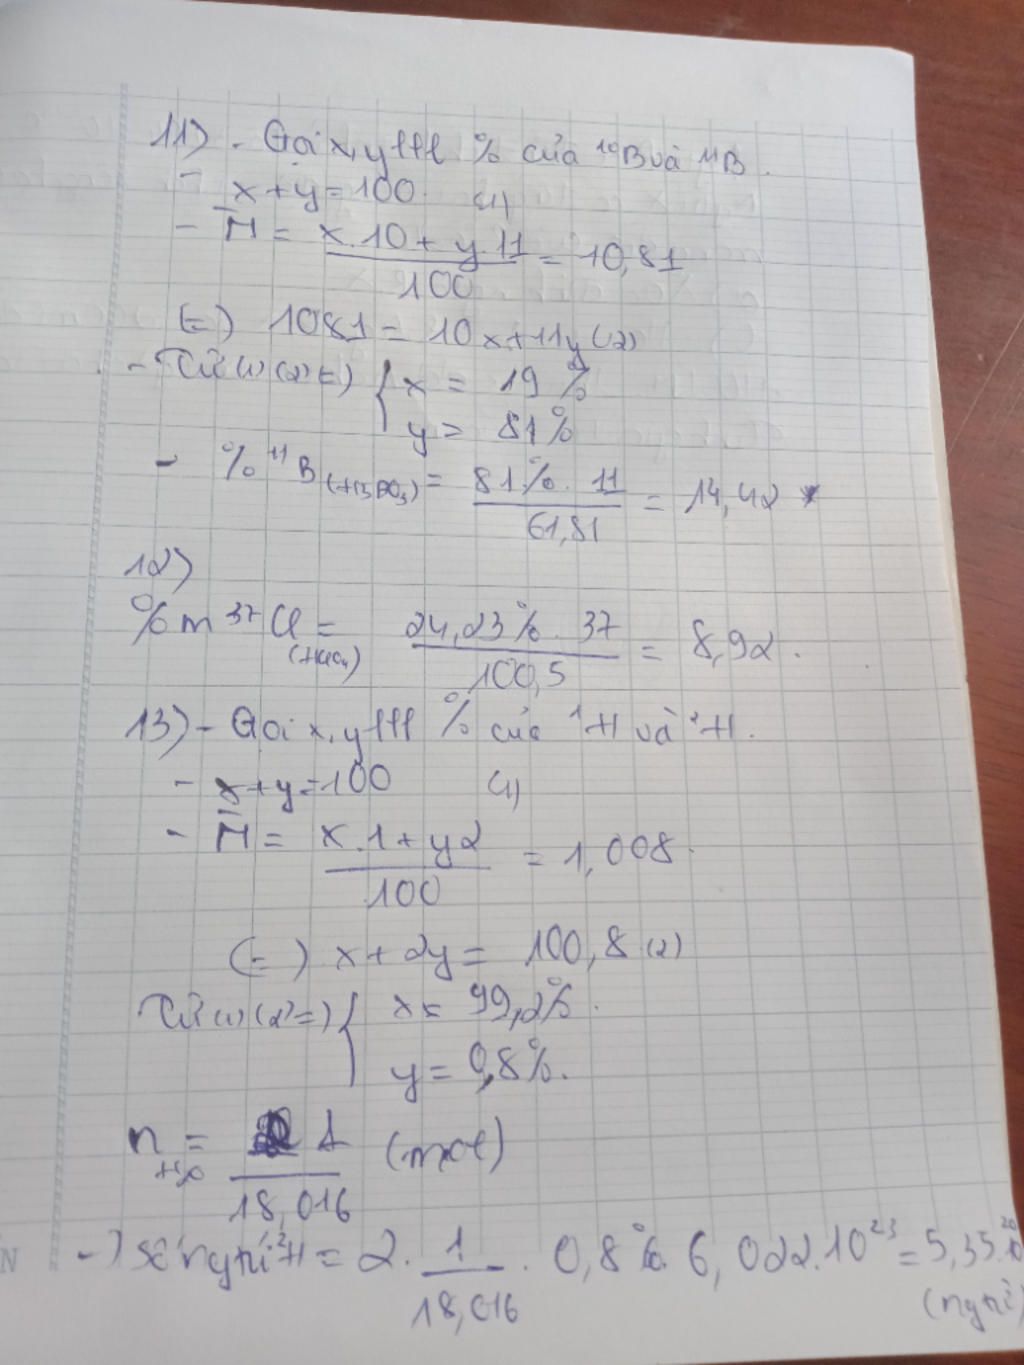 11) - Gọi x, y lll % của ¹⁰B và ¹¹B.
- x + y = 100. (1)
- M̅ = (x.10 + y.11)/100 = 10,81
(=) 1081 = 10x + 11y (2)
- Từ (1) (2) =) { x = 19 %
y = 81%
- % ¹¹B (H₃BO₃) = (81%. 11)/61,81 = 14,42
12)
%m ³⁷Cl (HClO₄) = (24,23%. 37)/100,5 = 8,92.
13) - Gọi x, y lll % của ¹H và ²H.
- x + y = 100 (1)
- M̅ = (x.1 + y2)/100 = 1,008.
(=) x + 2y = 100,8 (2)
Từ (1) (2) =) { x = 99,2%.
y = 0,8%.
n H₂O = 1/18,016 (mol)
-) số ngtử ²H = 2. 1/18,016 . 0,8%. 6,022.10²³ = 5,35.10²⁰
(ngtử)